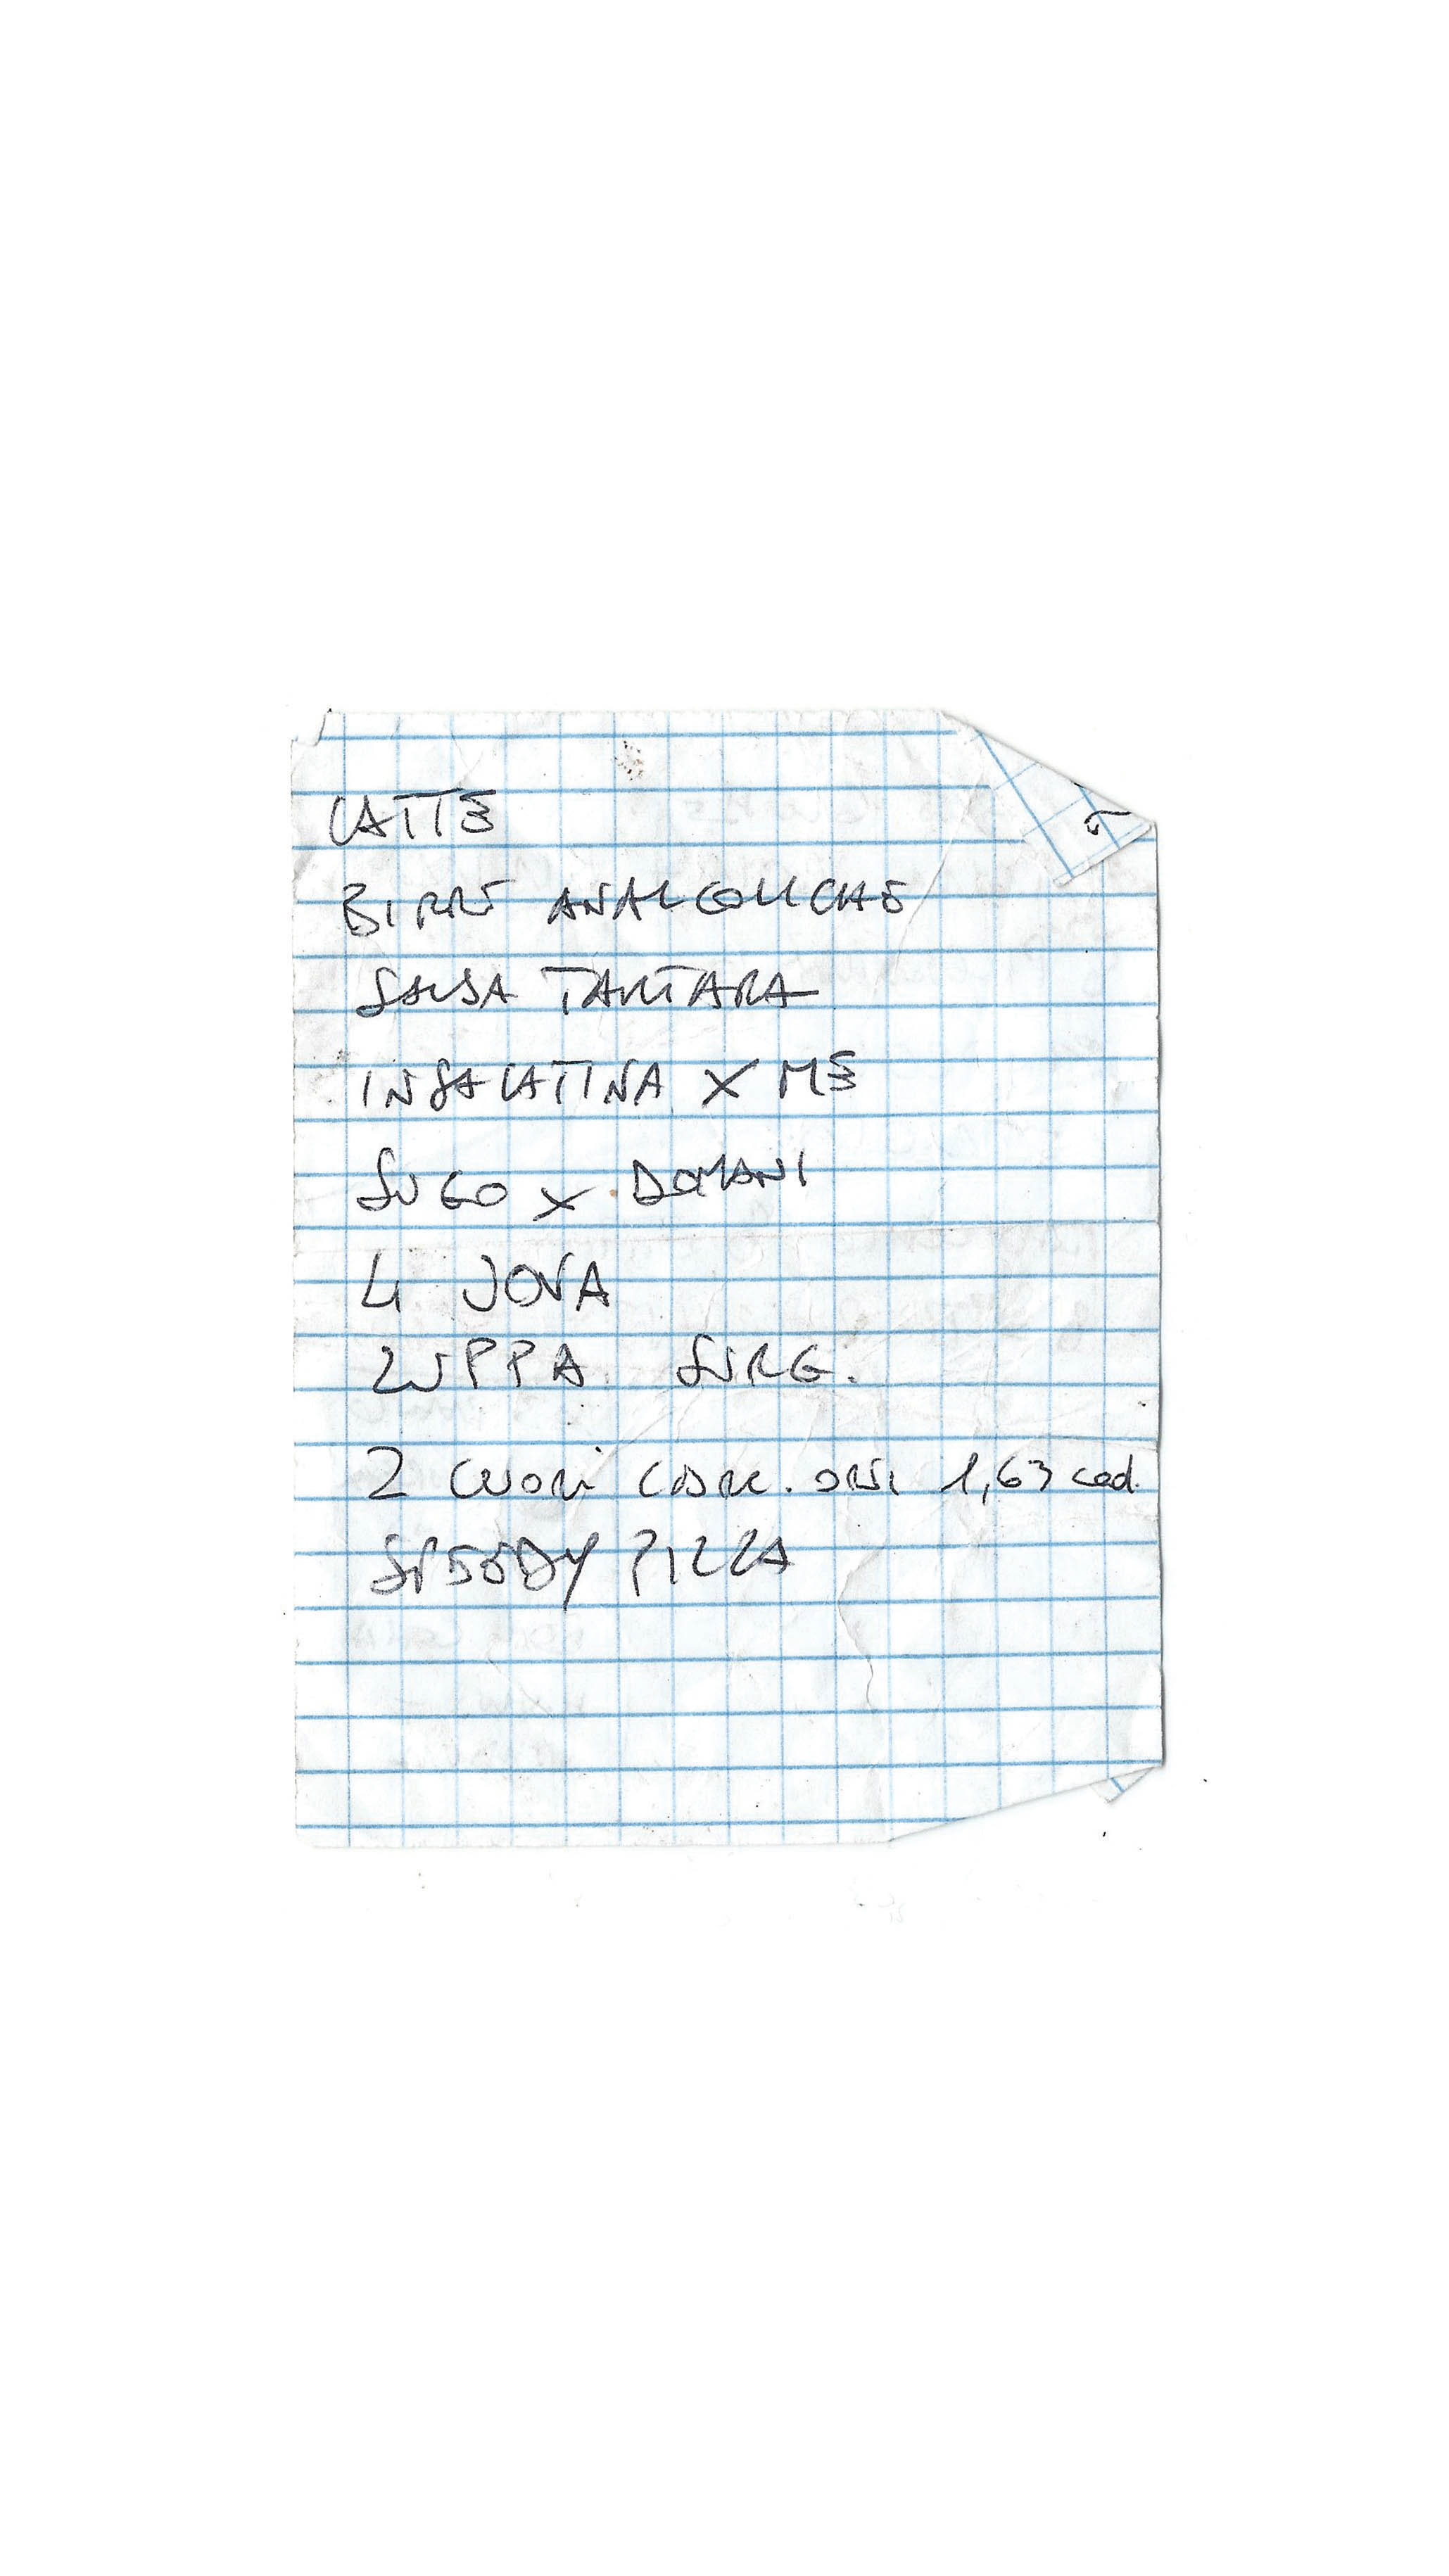 LATTE
BIRRE ANALCOLICHE
SALSA TARTARA
INSALATINA X ME
SUGO X DOMANI
4 UOVA
ZUPPA SURG.
2 CUORI 1,63 cad.
SPEEDY PIZZA